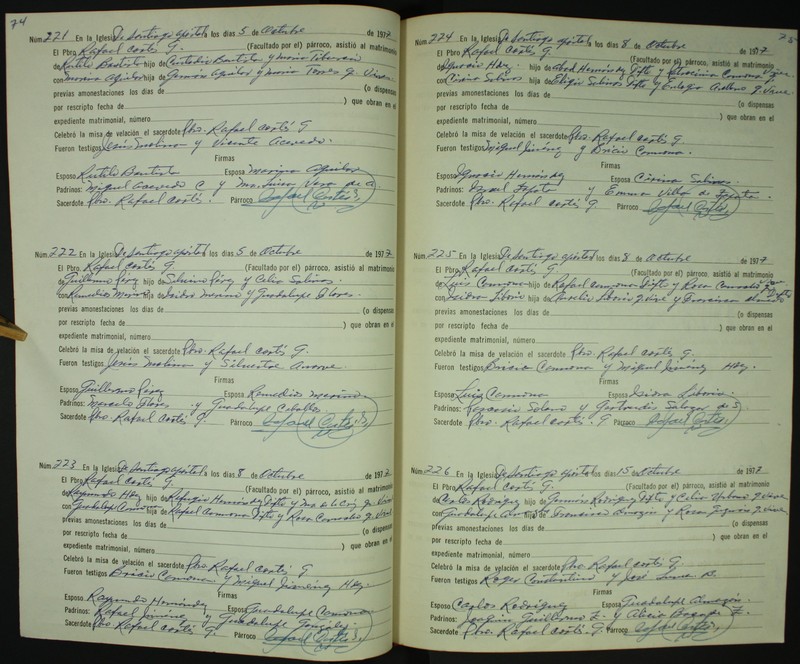 74
Núm. 221 En la Iglesia De Santiago apóstol a los días 5 de Octubre de 1977
El Pbro. Rafael Cortés G. (Facultado por el) párroco, asistió al matrimonio
de Rutilo Bautista hijo de Custodio Bautista y María
con hija de Germán Aguilar y María Torres
previas amonestaciones los días de (o dispensas
por rescripto fecha de ) que obran en el
expediente matrimonial, número
Celebró la misa de velación el sacerdote Pbro. Rafael Cortés G
Fueron testigos Jesús Molina y Vicente Acevedo.
Firmas
Esposo Rutilo Bautista Esposa Aguilar
Padrinos: Miguel Acevedo C. y Ma. Luisa Vera de A.
Sacerdote Pbro. Rafael Cortés. Párroco Rafael Cortés
Núm. 222 En la Iglesia De Santiago apóstol a los días 5 de Octubre de 1977
El Pbro. Rafael Cortés G. (Facultado por el) párroco, asistió al matrimonio
de Guillermo Pérez hijo de Silvino Pérez y Celia Salinas
con Remedios Merino hija de Isidro Merino y Guadalupe Flores
previas amonestaciones los días de (o dispensas
por rescripto fecha de ) que obran en el
expediente matrimonial, número
Celebró la misa de velación el sacerdote Pbro. Rafael Cortés G.
Fueron testigos Jesús Molina y Silvestre
Firmas
Esposo Guillermo Pérez Esposa Remedios Merino
Padrinos: Marcelo Flores y Guadalupe Ceballos
Sacerdote Pbro Rafael Cortés G. Párroco Rafael Cortés
Núm. 223 En la Iglesia De Santiago apóstol a los días 8 de Octubre de 1977
El Pbro. Rafael Cortés G. (Facultado por el) párroco, asistió al matrimonio
de Raymundo Hdz. hijo de Refugio Hernández Dfto y Ma de la Cruz
con Guadalupe hija de Rafael Carmona Dfto y Rosa
previas amonestaciones los días de (o dispensas
por rescripto fecha de ) que obran en el
expediente matrimonial, número
Celebró la misa de velación el sacerdote Pbro. Rafael Cortés G
Fueron testigos Bricio Carmona y Miguel Jiménez Hdz.
Firmas
Esposo Raymundo Hernández Esposa Guadalupe Carmona
Padrinos: Rafael Jiménez y Guadalupe González.
Sacerdote Pbro Rafael Cortés G. Párroco Rafael Cortés
Núm. 224 En la Iglesia De Santiago apóstol a los días 8 de Octubre de 1977
El Pbro. Rafael Cortés G. (Facultado por el) párroco, asistió al matrimonio
de Ignacio Hdz. hijo de Abad Hernández Dfto y Carmona
con Cirina Salinas hija de Eligio Salinas Dfto y
previas amonestaciones los días de (o dispensas
por rescripto fecha de ) que obran en el
expediente matrimonial, número
Celebró la misa de velación el sacerdote Pbro. Rafael Cortés G
Fueron testigos Miguel Jiménez y Bricio Carmona.
Firmas
Esposo Ignacio Hernández Esposa Cirina Salinas
Padrinos: Israel Zapata y Emma Villa de Zapata
Sacerdote Pbro. Rafael Cortés G. Párroco Rafael Cortés
Núm. 225 En la Iglesia De Santiago apóstol a los días 8 de Octubre de 1977
El Pbro. Rafael Cortés G. (Facultado por el) párroco, asistió al matrimonio
de Luis Carmona hijo de Rafael Carmona Dfto y Rosa
con Isidra Liborio hija de Liborio y Francisca
previas amonestaciones los días de (o dispensas
por rescripto fecha de ) que obran en el
expediente matrimonial, número
Celebró la misa de velación el sacerdote Pbro. Rafael Cortés G.
Fueron testigos Bricio Carmona y Miguel Jiménez Hdz.
Firmas
Esposo Luis Carmona Esposa Isidra Liborio
Padrinos: Rosario Solano y Gertrudis Salazar de S.
Sacerdote Pbro. Rafael Cortés. G Párroco Rafael Cortés
Núm. 226 En la Iglesia De Santiago apóstol a los días 15 de Octubre de 1977
El Pbro. Rafael Cortés G. (Facultado por el) párroco, asistió al matrimonio
de Carlos Rodríguez hijo de Germán Rodríguez Dfto y Celia
con Guadalupe hija de Francisco Almazán y Rosa
previas amonestaciones los días de (o dispensas
por rescripto fecha de ) que obran en el
expediente matrimonial, número
Celebró la misa de velación el sacerdote Pbro. Rafael Cortés G
Fueron testigos Roger Constantino y José Luna R.
Firmas
Esposo Carlos Rodríguez Esposa Guadalupe Almazán
Padrinos: Joaquín Guillermo Z. y Alicia
Sacerdote Pbro. Rafael Cortés. G. Párroco Rafael Cortés